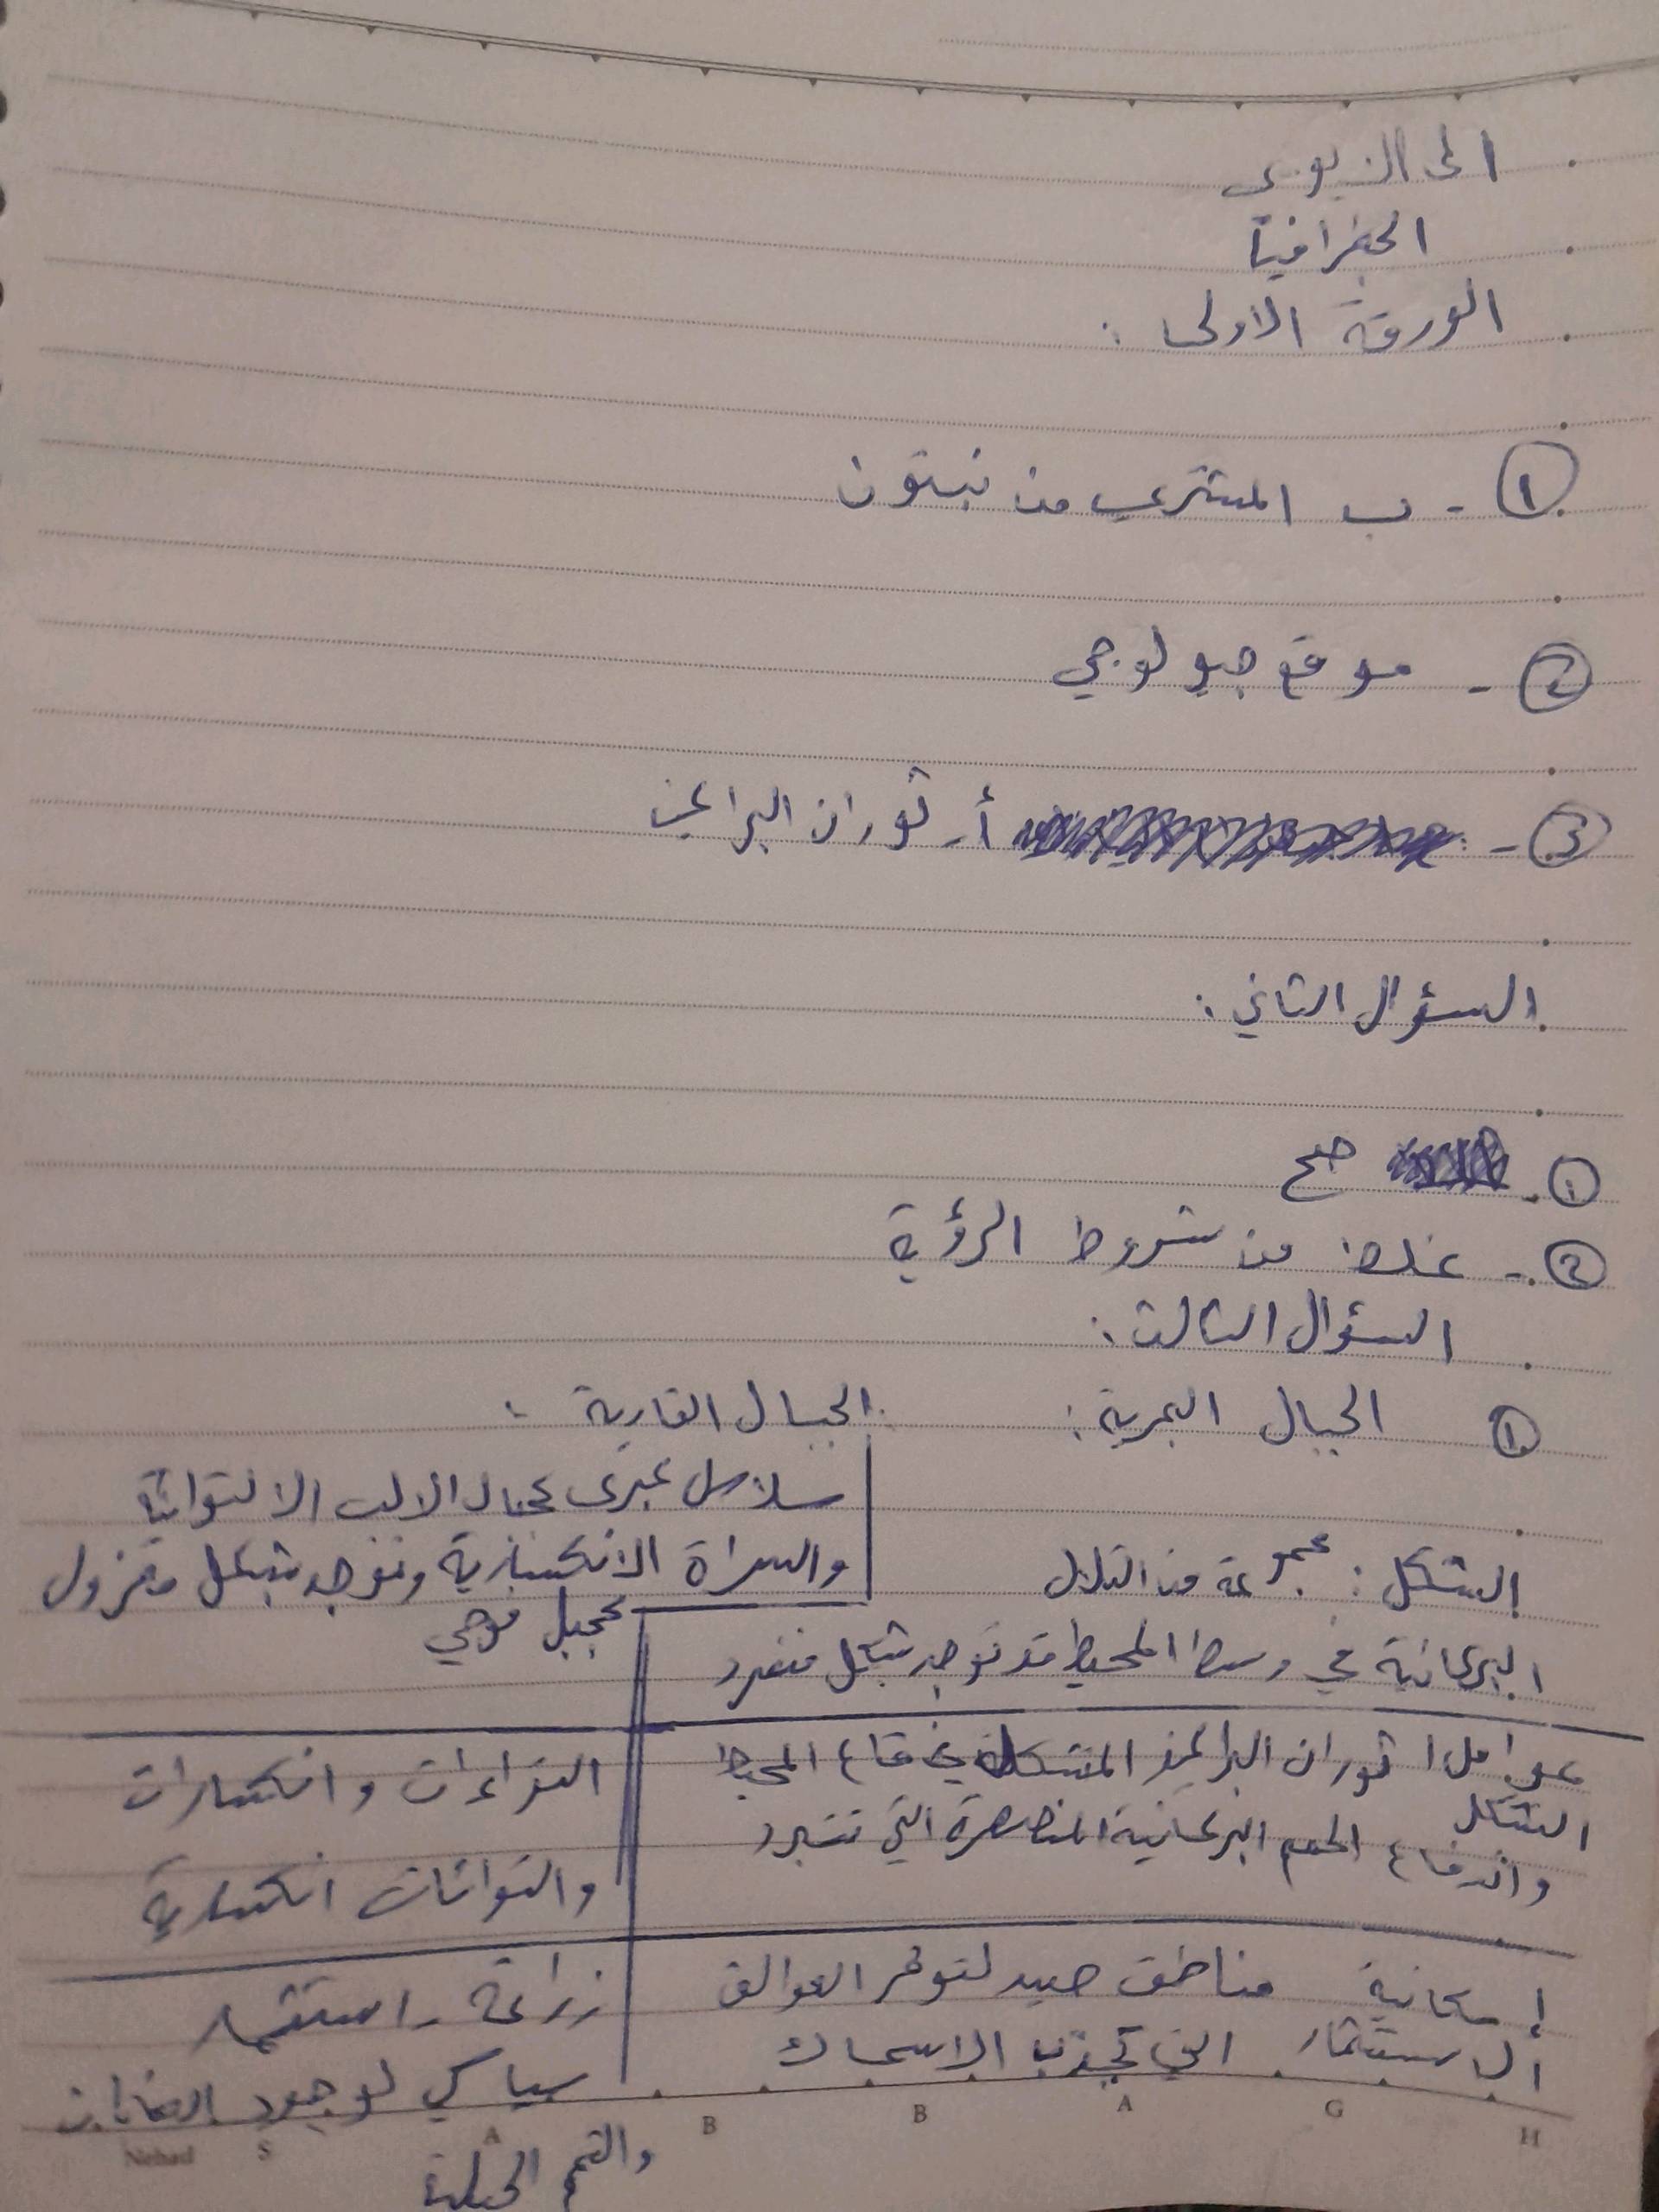 الجغرافيا
الورقة الاولى :
① - ب المشتري من نبتون
② - موقع جيولوجي
③ - أ - ثوران البراكين
السؤال الثاني :
① - صح
② - غلط من شروط الرؤية
السؤال الثالث :
① الجبال البحرية : الجبال القارية :
سلاسل كبرى كجبال الالب الالتوائية
والسراة الانكسارية وتوجد بشكل معزول
كجبل فوجي
الشكل : مجموعة من التلال
البركانية في وسط المحيط قد توجد بشكل منفرد
عوامل التشكل ثوران البراكين المتشكلة في قاع المحيط
واندفاع الحمم البركانية المنصهرة التي تتبرد
التواءات و انكسارات
والتوائات انكسارية
إمكانية الاستثمار مناطق صيد لتوفر العوالق
التي تجذب الاسماك
زراعة - استثمار
سياحي لوجود الغابات
والقمم الجبلية
Nehad S A B B A G H